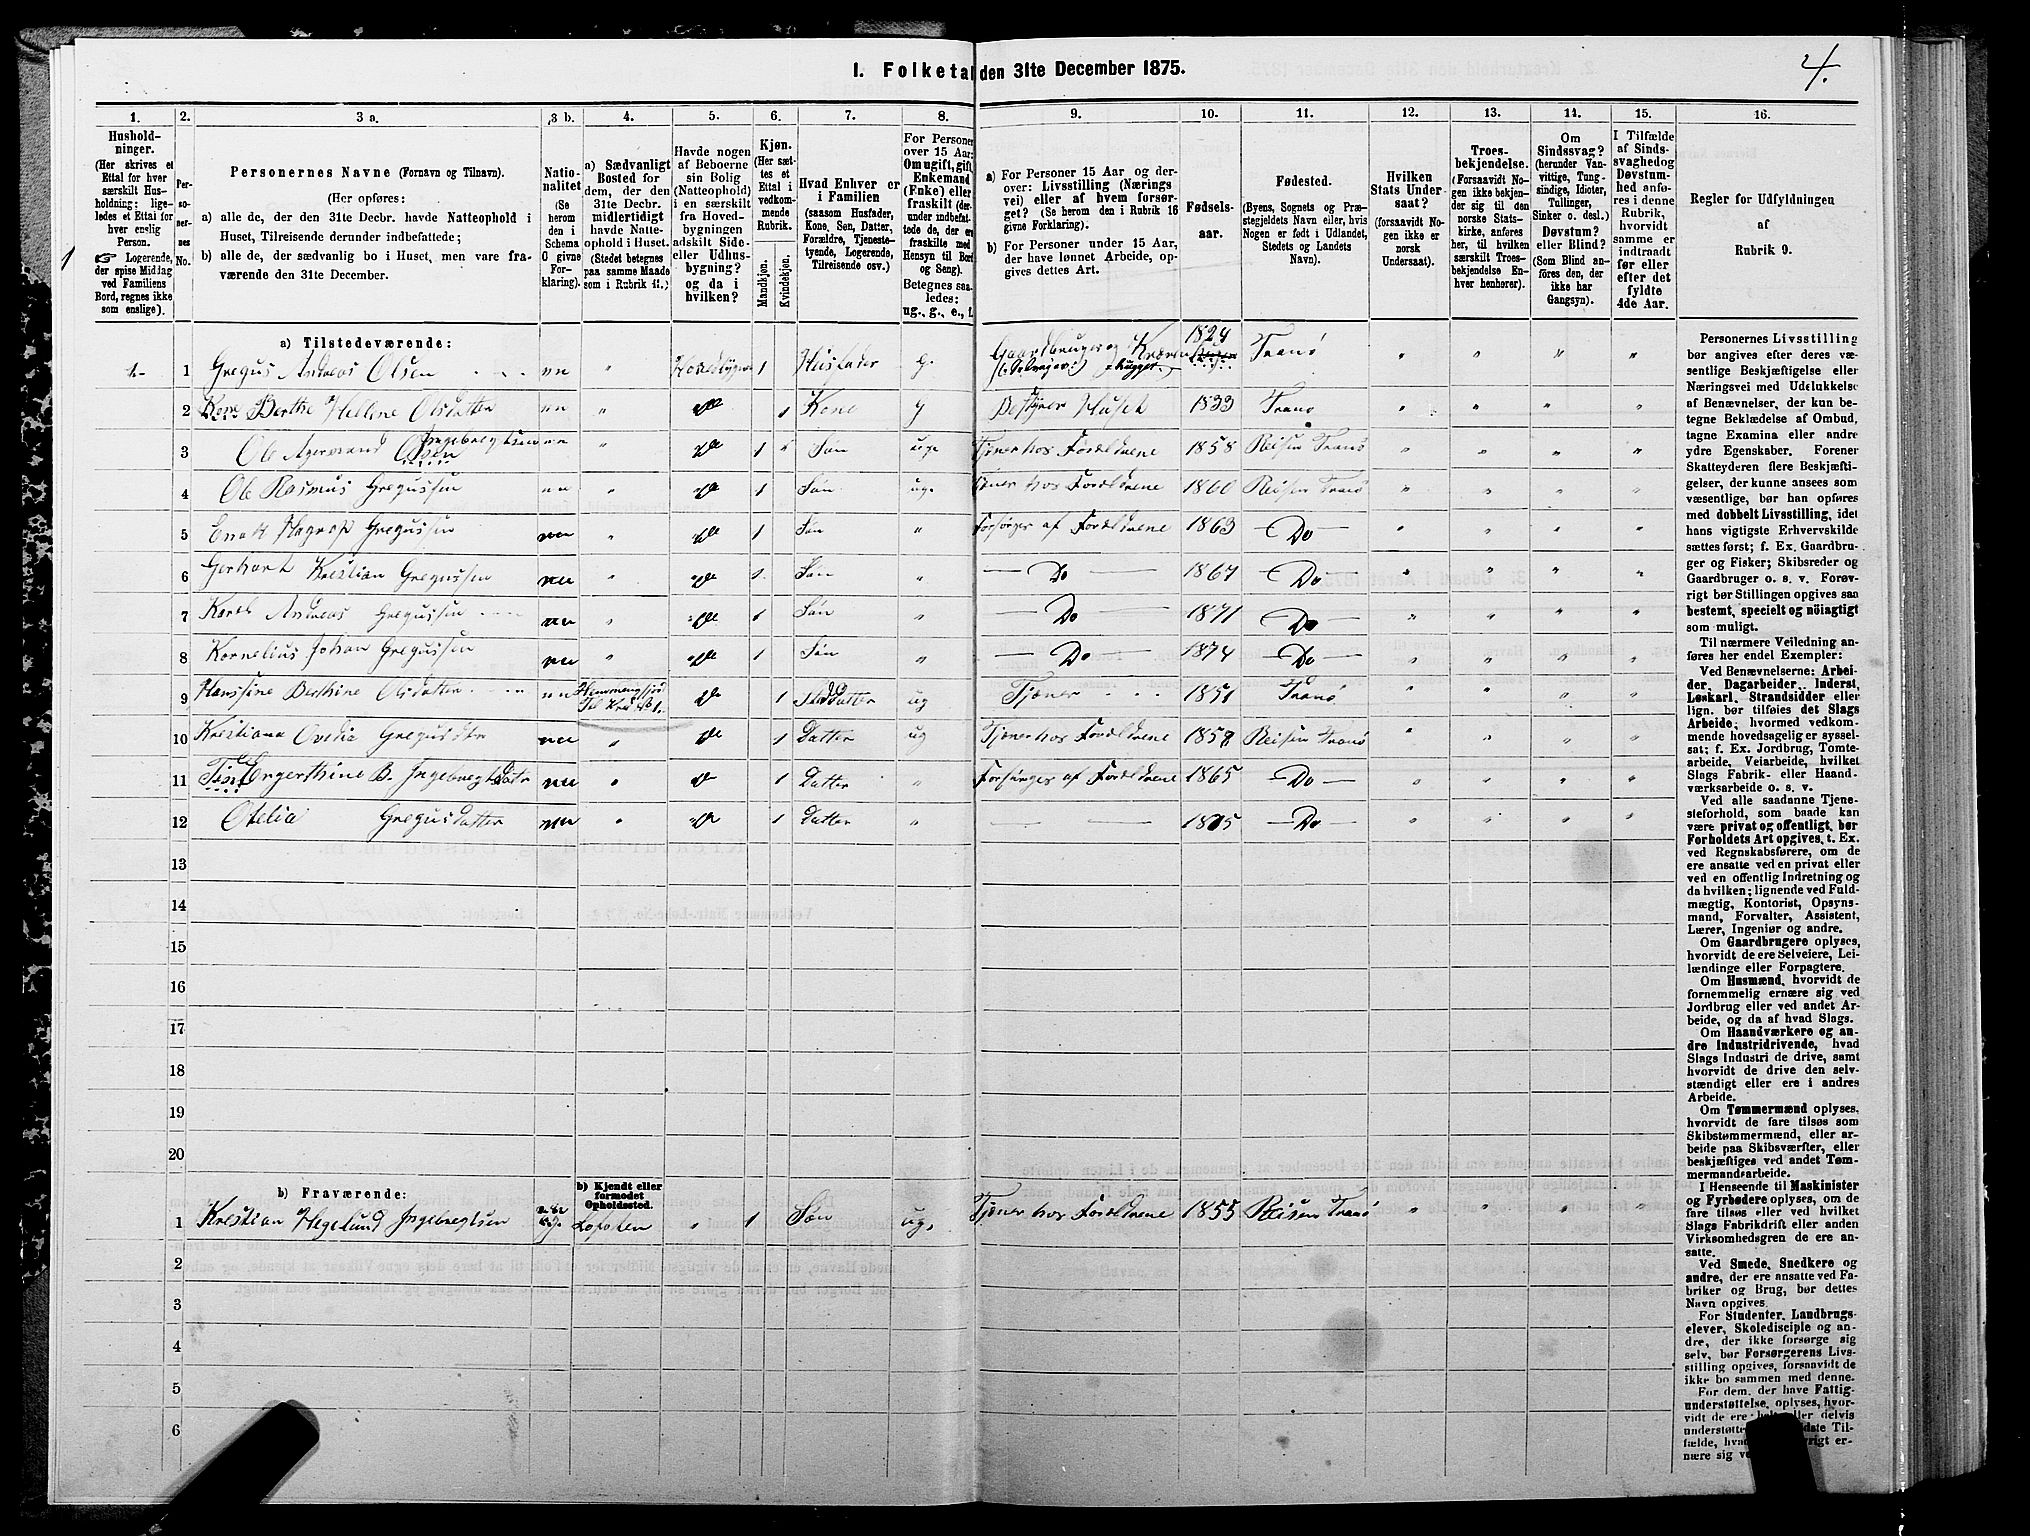 4.
I. Folketal den 31te December 1875.
1.
Hushold-
ninger.
(Her skrives et
Ettal for hver
særskilt Hus-
holdning; lige-
ledes et Ettal for
hver enslig
Person.
☞ Logerende,
der spise Middag
ved Familiens
Bord, regnes ikke
som enslige).
2.
Per-
so-
ner-
nes
No.
3 a.
Personernes Navne (Fornavn og Tilnavn).
(Her opføres:
a) alle de, der den 31te Decbr. havde Natteophold i
Huset, Tilreisende derunder indbefattede;
b) alle de, der sædvanlig bo i Huset, men vare fra-
værende den 31te December.
3 b.
Natio-
nalitet
(Se
herom
den i
Schema
O givne
For-
klaring).
4.
a) Sædvanligt
Bosted for
dem, der den
31te Decbr.
midlertidigt
havde Natte-
ophold i Huset.
(Stedet betegnes
paa samme Maade
som i Rubrik 11.)
5.
Havde nogen
af Beboerne
sin Bolig
(Natteophold)
i en særskilt
fra Hoved-
bygningen
adskilt Side-
eller Udhus-
bygning?
og da i
hvilken?
6.
Kjøn.
(Her sæt-
tes et
Ettal i
vedkom-
mende
Rubrik.
Mandkjøn.
Kvindekjøn.
7.
Hvad Enhver er
i Familien
(saasom Husfader,
Kone, Søn, Datter,
Forældre, Tjeneste-
tyende, Logerende,
Tilreisende osv.)
8.
For Personer
over 15 Aar:
Om ugift, gift,
Enkemand
(Enke) eller
fraskilt (der-
under indbefat-
tede de, der ere
fraskilte med
Hensyn til Bord
og Seng)
Betegnes saa-
ledes:
ug., g., e., f.
9.
a) For Personer 15 Aar og der-
over: Livsstilling (Nærings-
vei) eller af hvem forsør-
get? (Se herom den i Rubrik 16
givne Forklaring).
b) For Personer under 15 Aar,
der have lønnet Arbeide, op-
gives dettes Art.
10.
Fødsels-
aar.
11.
Fødested.
(Byens, Sognets og Præ-
stegjeldets Navn eller, hvis
Nogen er født i Udlandet,
Stedets og Landets
Navn).
12.
Hvilken
Stats Under-
saat?
(forsaavidt No-
gen ikke er
norsk
Undersaat).
13.
Troes-
bekjendelse.
(Forsaavidt No-
gen ikke bekjen-
der sig til den
norske Stats-
kirke, anføres
her, til hvilken
særskilt Troes-
bekjendelse En-
hver henhører).
14.
Om
Sindssvag?
(herunder Van-
vittige, Tung-
sindige, Idioter,
Tullinger,
Sinker o. desl.)
Døvstum?
eller Blind?
(Som Blind an-
føres den, der
ikke har
Gangsyn).
15.
I Tilfælde
af Sinds-
svaghed og
Døvstum-
hed anfø-
res i denne
Rubrik,
hvorvidt
samme er
indtraadt
før eller
efter det
fyldte
4de Aar.
16.
Regler for Udfyldningen
af
Rubrik 9.
a) Tilstedeværende:
1 Gregus Andreas Olsen nn " 1 Husfader g. Gaardbruger og 1824 Tranø " " " "
2 Kone Berthe Helene Olsdatter nn " do 1 Kone g Bestyrer Huset 1833 Tranø " " " "
3 Ole Ingebregtsen nn " do 1 Søn ug. Tjener hos Forældrene 1858 Reisen Tranø " " " "
4 Ole Rasmus Gregussen nn " do 1 Søn ug. Tjener hos Forældrene 1860 Reisen Tranø " " " "
5 Gregussen nn " do 1 Søn " Forsørges af Forældrene 1863 — Do — " " " "
6 Gerhart Kristian Gregussen nn " do 1 Søn " — Do — 1867 — Do — " " " "
7 Karl Andreas Gregussen nn " do 1 Søn " — Do — 1871 — Do — " " " "
8 Kornelius Johan Gregussen nn " do 1 Søn " — Do — 1874 — Do — " " " "
9 Hanssine Berthine Olsdatter nn do 1 Datter ug Tjener 1851 Tranø " " " "
10 Kristiana Ovedia Gregusdtr nn " do 1 Datter ug Tjener hos Forældrene 1858 Reisen Tranø " " " "
11 Engerthine B. Ingebregtsdatr nn " do 1 Datter " Forsørges af Forældrene 1865 — Do — " " " "
12 Otelia Gregusdatter nn " do 1 Datter " — — 1875 — Do — " " " "
13
14
15
16
17
18
19
20
b) Fraværende:
b) Kjendt eller
formodet
Opholdssted.
1 Kristian Hegelund Ingebregtsen Lofoten " 1 Søn ug. Tjener hos Forældrene 1855 Reisen Tranø " " " "
2
3
4
5
6
Personernes Livsstilling
bør angives efter deres væ-
sentlige Beskjæftigelse eller
Næringsvei med Udelukkelse
af Benævnelser, der kun be-
tegne Beklædelse af Ombud,
tagne Examina eller andre
ydre Egenskaber. Forener
Skatteyderen flere Beskjæfti-
gelser, der kunne ansees som
væsentlige, bør han opføres
med dobbelt Livsstilling, idet
hans vigtigste Erhvervskilde
sættes først; f. Ex. Gaardbru-
ger og Fisker; Skibsreder og
Gaardbruger o. s. v. Forøv-
rigt bør Stillingen opgives saa
bestemt, specielt og nöiagtigt
som muligt.
Til nærmere Veiledning an-
føres her endel Exempler:
Ved Benævnelserne: Arbei-
der, Dagarbeider, Inderst,
Løskarl, Strandsidder eller
lign. bør tilføies det Slags
Arbeide; hvormed vedkom-
mende hovedsagelig er syssel-
sat; f. Ex. Jordbrug, Tomte-
arbeide, Veiarbeide, hvilket
Slags Fabrik- eller Haand-
værksarbeide o. s. v.
Ved alle saadanne Tjene-
steforhold, som baade kan
være privat og offentligt, bør
Forholdets Art opgives, t. Ex.
ved Regnskabsførere, om de
ere ansatte ved en privat eller
ved en offentlig Indretning og
da hvilken; lignende ved Fuld-
mægtig, Kontorist, Opsyns-
mand, Forvalter, Assistent,
Lærer, Ingeniør og andre.
Om Gaardbrugere oplyses,
hvorvidt de ere Selveiere, Lei-
lændinge eller Forpagtere.
Om Husmænd, hvorvidt de
fornemmelig ernære sig ved
Jordbrug eller ved andet Ar-
beide, og da af hvad Slags.
Om Haandværkere og an-
dre Industridrivende, hvad
Slags Industri de drive, samt
hvorvidt de drive den selv-
stændigt eller ere i andres
Arbeide.
Om Tømmermænd oplyses,
hvorvidt de fare tilsøs som
Skibstømmermænd, eller ar-
beide paa Skibsværfter, eller
beskjæftiges ved andet Tøm-
mermandsarbeide.
I Henseende til Maskinister
og Fyrbødere oplyses, om de
fare tilsøs eller ved hvilket
Slags Fabrikdrift eller anden
Virksomhedsgren de ere an-
satte.
Ved Smede, Snedkere og
andre, der ere ansatte ved Fa-
briker og Brug, bør dettes
Navn opgives.
For Studenter, Landbrugs-
elever, Skoledisciple og an-
dre, der ikke forsørge sig
selv, bør Forsørgerens Livs-
stilling opgives, forsaavidt de
ikke bo sammen med denne.
For dem, der have Fattig-
understøttelse, oplyses, hvor-
vidt de ere